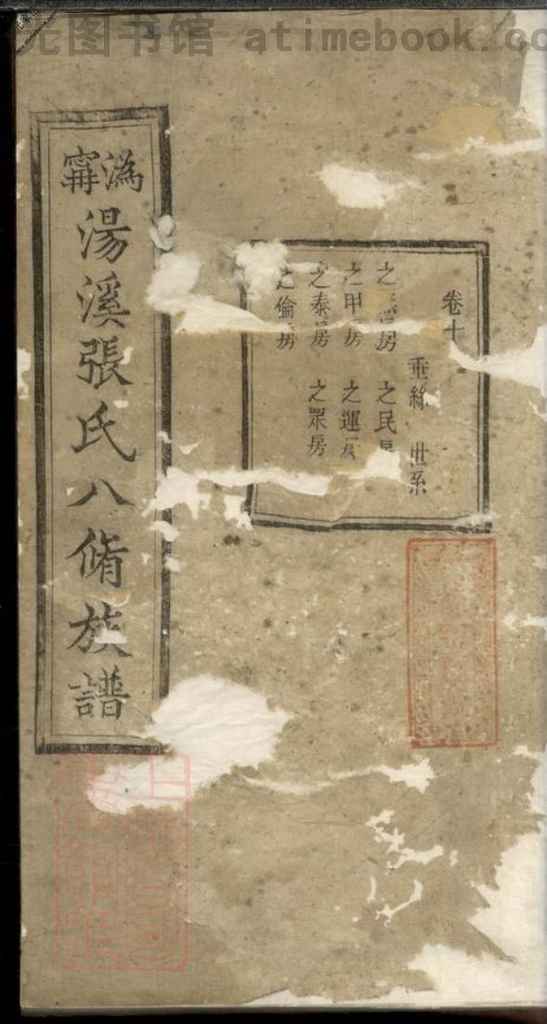 元图书馆 atimebook.co
卷十
垂絲 世系
之房 之民
之甲房 之運房
之泰房 之眾房
之倫房
溈甯
湯溪張氏八脩族譜